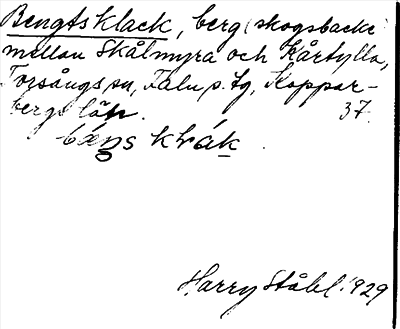 Bengtsklack, berg (skogsbacke)
mellan Skålmyra och Kårtylla,
Torsångs sn, Falu s. tg, Koppar-
bergs län. 37.
Harry Ståhl 1929